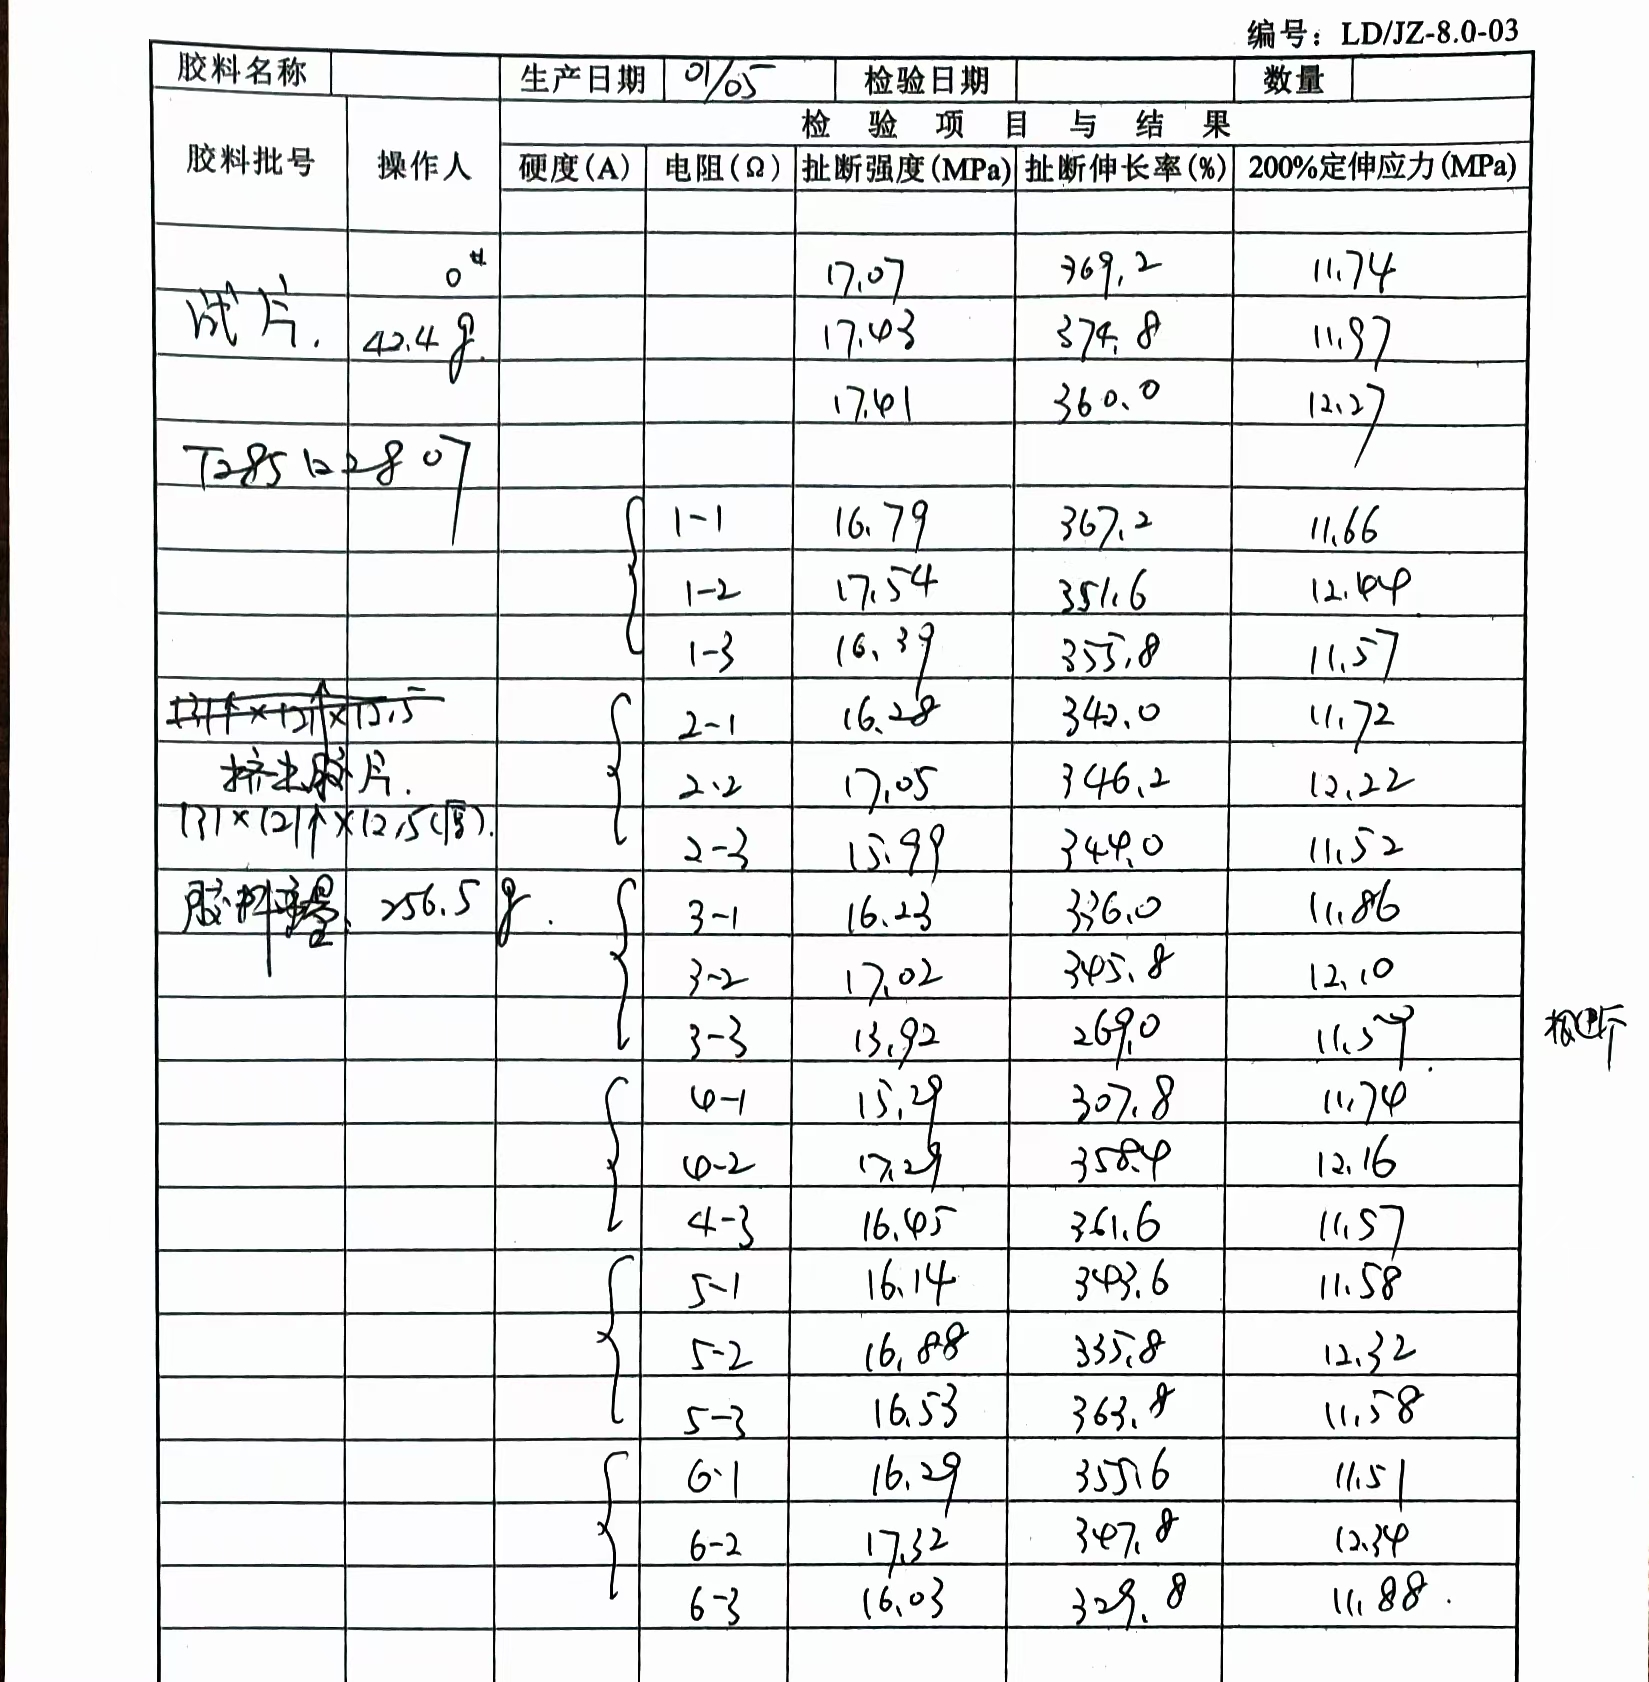 编号：LD/JZ-8.0-03
胶料名称 生产日期 01/05 检验日期 数量
胶料批号 操作人 检验项目与结果
硬度(A) 电阻(Ω) 扯断强度(MPa) 扯断伸长率(%) 200%定伸应力(MPa)
0# 17.07 369.2 11.74
试片. 42.4g. 17.43 374.8 11.97
17.41 360.0 12.27
T285122807
1-1 16.79 367.2 11.66
1-2 17.54 351.6 12.44
1-3 16.39 355.8 11.57
131↑×121↑×12.5 2-1 16.28 342.0 11.72
挤出胶片. 2-2 17.05 346.2 12.22
131×121↑×12.5(厚). 2-3 15.99 344.0 11.52
胶料重量 256.5g. 3-1 16.23 336.0 11.86
3-2 17.02 345.8 12.10
3-3 13.92 269.0 11.59.
4-1 15.29 307.8 11.74
4-2 17.29 358.4 12.16
4-3 16.45 361.6 11.57
5-1 16.14 343.6 11.58
5-2 16.88 335.8 12.32
5-3 16.53 363.8 11.58
6-1 16.29 355.6 11.51
6-2 17.32 347.8 12.34
6-3 16.03 329.8 11.88.